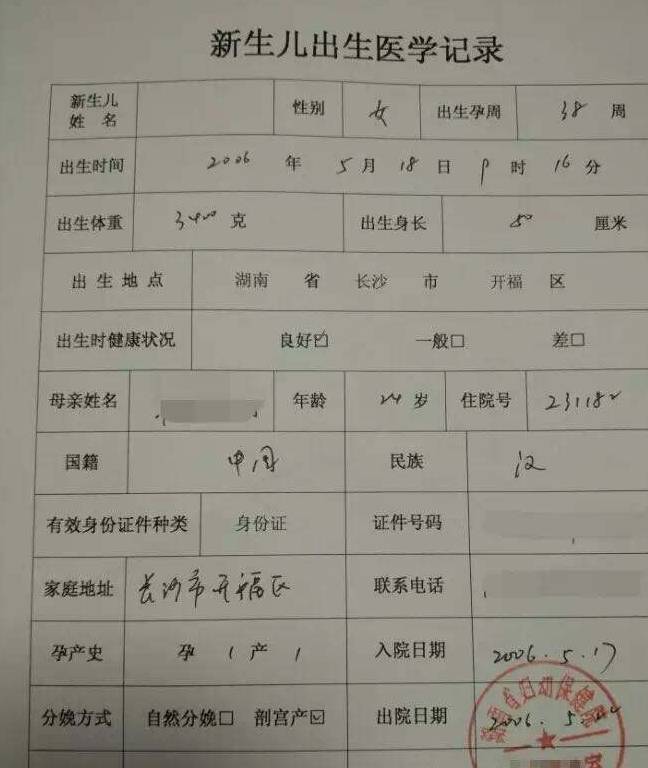 新生儿出生医学记录
新生儿姓名 性别 女 出生孕周 38 周
出生时间 2006 年 5 月 18 日 9 时 16 分
出生体重 3400 克 出生身长 50 厘米
出生地点 湖南 省 长沙 市 开福 区
出生时健康状况 良好☑ 一般□ 差□
母亲姓名 年龄 24 岁 住院号 231182
国籍 中国 民族 汉
有效身份证件种类 身份证 证件号码
家庭地址 长沙市开福区 联系电话
孕产史 孕 1 产 1 入院日期 2006.5.17
分娩方式 自然分娩□ 剖宫产☑ 出院日期 2006.5.
省妇幼保健院